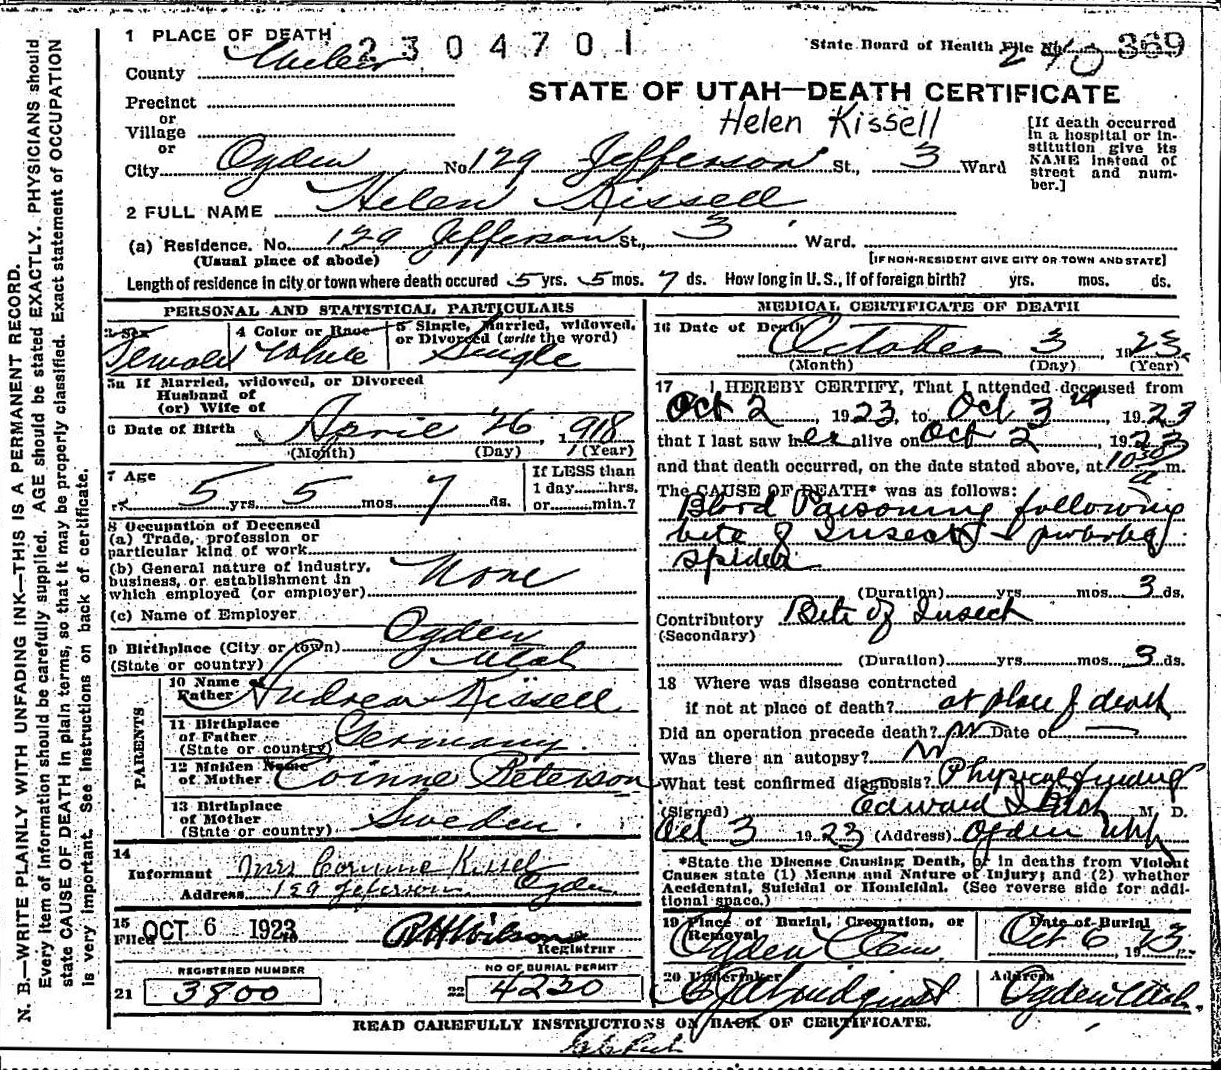 N. B.—WRITE PLAINLY WITH UNFADING INK—THIS IS A PERMANENT RECORD.
Every item of information should be carefully supplied. AGE should be stated EXACTLY. PHYSICIANS should
state CAUSE OF DEATH in plain terms, so that it may be properly classified. Exact statement of OCCUPATION
is very important. See instructions on back of certificate.
1 PLACE OF DEATH
2304701
State Board of Health File No. 369
240
County Weber
STATE OF UTAH—DEATH CERTIFICATE
Precinct
or
Village
or
Helen Kissell
[If death occurred
in a hospital or in-
stitution give its
NAME instead of
street and num-
ber.]
City Ogden No 129 Jefferson St., 3 Ward
2 FULL NAME Helen Kissell
(a) Residence. No. 129 Jefferson St., 3 Ward.
(Usual place of abode) [IF NON-RESIDENT GIVE CITY OR TOWN AND STATE]
Length of residence in city or town where death occured 5 yrs. 5 mos. 7 ds. How long in U.S., if of foreign birth? yrs. mos. ds.
PERSONAL AND STATISTICAL PARTICULARS
3 Sex 4 Color or Race 5 Single, Married, widowed,
or Divorced (write the word)
Female White Single
5a If Married, widowed, or Divorced
Husband of
(or) Wife of
6 Date of Birth April 26, 1918
(Month) (Day) (Year)
7 Age
5 yrs. 5 mos. 7 ds.
If LESS than
1 day......hrs.
or......min.?
8 Occupation of Deceased
(a) Trade, profession or
particular kind of work
(b) General nature of industry,
business, or establishment in
which employed (or employer) None
(c) Name of Employer
9 Birthplace (City or town) Ogden
(State or country) Utah
PARENTS
10 Name of
Father Andrew Kissell
11 Birthplace
of Father
(State or country) Germany.
12 Maiden Name
of Mother Corinne Peterson
13 Birthplace
of Mother
(State or country) Sweden.
14
Informant Mrs Corinne Kissel
Address 129 Jefferson Ogden
15
Filed OCT 6 1923 R H Wilson
Registrar
REGISTERED NUMBER NO OF BURIAL PERMIT
21 3800 22 4230
MEDICAL CERTIFICATE OF DEATH
16 Date of Death
October 3, 1923.
(Month) (Day) (Year)
17 I HEREBY CERTIFY, That I attended deceased from
Oct 2, 1923, to Oct 3rd 1923
that I last saw her alive on Oct 2, 1923
and that death occurred, on the date stated above, at 10 30 a m.
The CAUSE OF DEATH* was as follows:
Blood Poisoning following
bite of Insect probably
spider
(Duration) yrs mos. 3 ds.
Contributory Bite of Insect
(Secondary)
(Duration) yrs. mos. 3 ds.
18 Where was disease contracted
if not at place of death? at place of death
Did an operation precede death? no Date of —
Was there an autopsy? no
What test confirmed diagnosis? Physical finding
(Signed) Edward I M. D.
Oct 3 1923 (Address) Ogden Utah
*State the Disease Causing Death, or in deaths from Violent
Causes state (1) Means and Nature of Injury; and (2) whether
Accidental, Suicidal or Homicidal. (See reverse side for addi-
tional space.)
19 Place of Burial, Cremation, or
Removal
Date of Burial
Ogden Cem. Oct 6, 1923
20 Undertaker Address
Lindquist Ogden Utah.
READ CAREFULLY INSTRUCTIONS ON BACK OF CERTIFICATE.